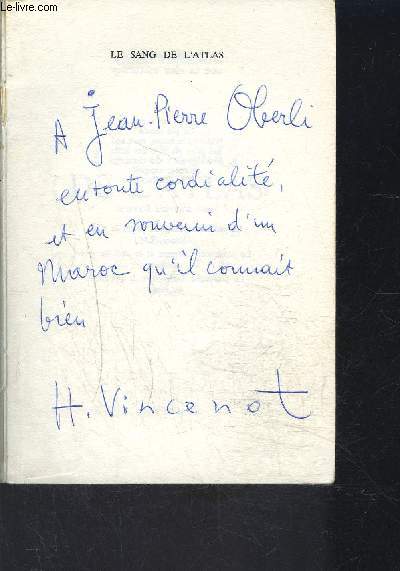 Le-livre.com
LE SANG DE L'ATLAS
A Jean-Pierre Oberli
en toute cordialité,
et en souvenir d'un
Maroc qu'il connait
bien
H. Vincenot